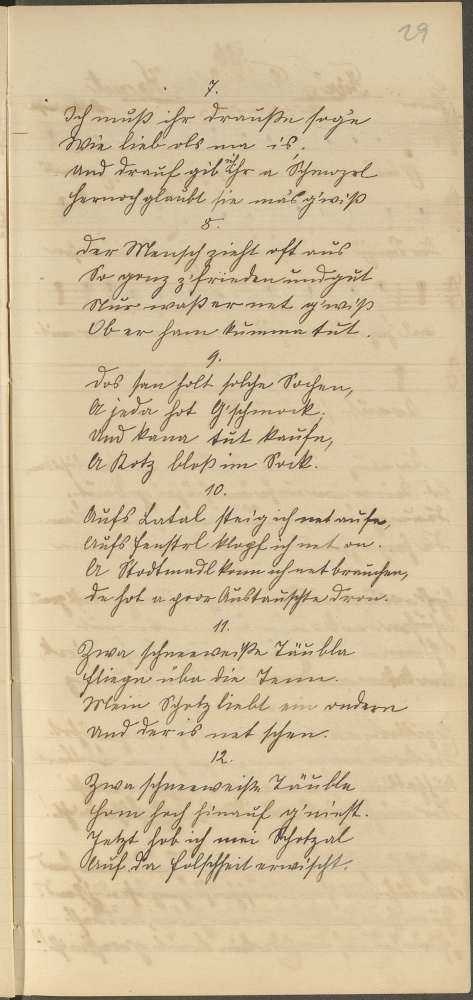 29
7.
Ich muß ihr draußn sog'n
Wie lieb als ma is,
Und drauf gib ich ihr a Schmozl
Hernoch glaubt sie ma's g'wiß
8.
Der Mensch zieht oft aus
So gonz z'frieden und gut
Nur waß er net g'wiß
Ob er ham kumma tut.
9.
Dos san holt solche Sochen,
A jeda hot G'schmock,
Und kana tut kaufn,
A Kotz bloß im Sock.
10.
Aufs Latal steig ich net aufn,
Aufs Fenstrl klopf ich net on.
A Stodtmadl konn ich net brauchen,
de hot a poor Austauschte dron.
11.
Zwa schneeweiße Täubla
Fliegn üba die Tenn.
Mein Schotz liebt ein ondern
Und der is net schen.
12.
Zwa schneeweiße Täubla
Hom hoch hinauf g'nist.
Jetzt hob ich mei Schotzal
Auf da Folschheit erwischt.